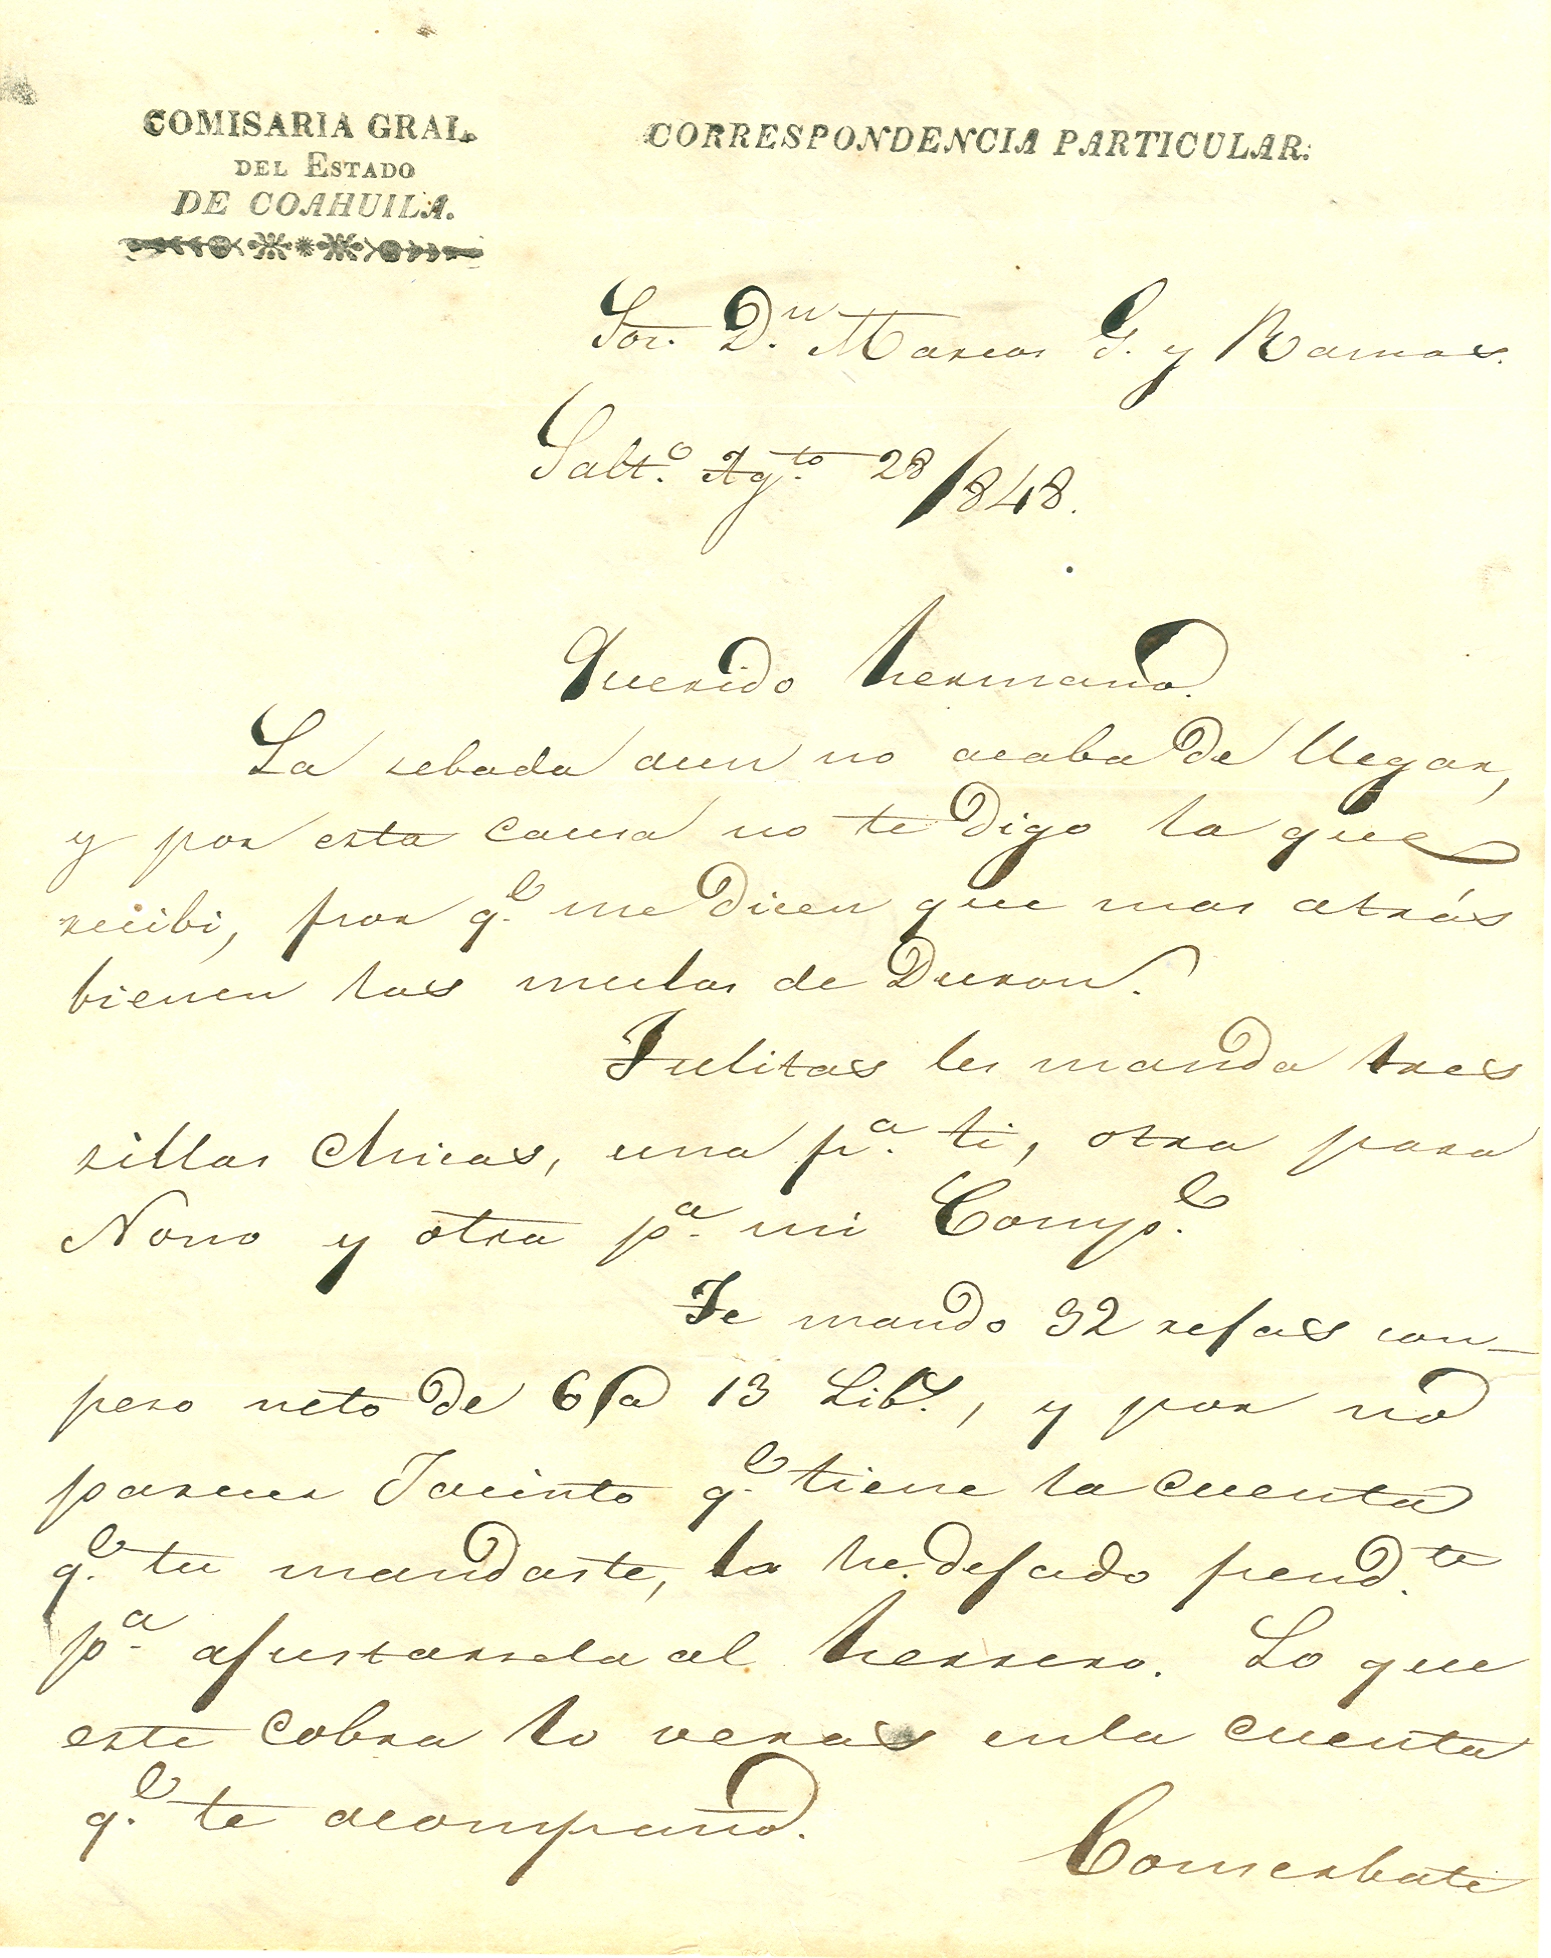 COMISARIA GRAL.
DEL ESTADO
DE COAHUILA.
CORRESPONDENCIA PARTICULAR.
Sor. Dn. Marcos G. y Ramos.
Salto. Agto. 28/848.
Querido hermano.
La sebada aun no acaba de llegar,
y por esta causa no te digo la que
recibi, por qe. me dicen que mas atrás
bienen las mulas de Duron.
Julitas les manda tres
sillas chicas, una pa. ti, otra para
Nono y otra pa. mi Compe.
Te mando 32 rejas con
peso neto de 6 @ 13 Libs., y por no
Jacinto qe. tiene la cuenta
qe. tu mandaste, la he dejado pendte.
pa. ajustarsela al herrero. Lo que
este cobra lo veras en la cuenta
qe. te acompaño.
Conserbate